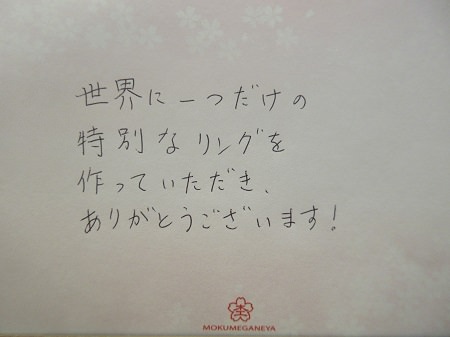 世界に一つだけの
特別なリングを
作っていただき、
ありがとうございます!
MOKUMEGANEYA